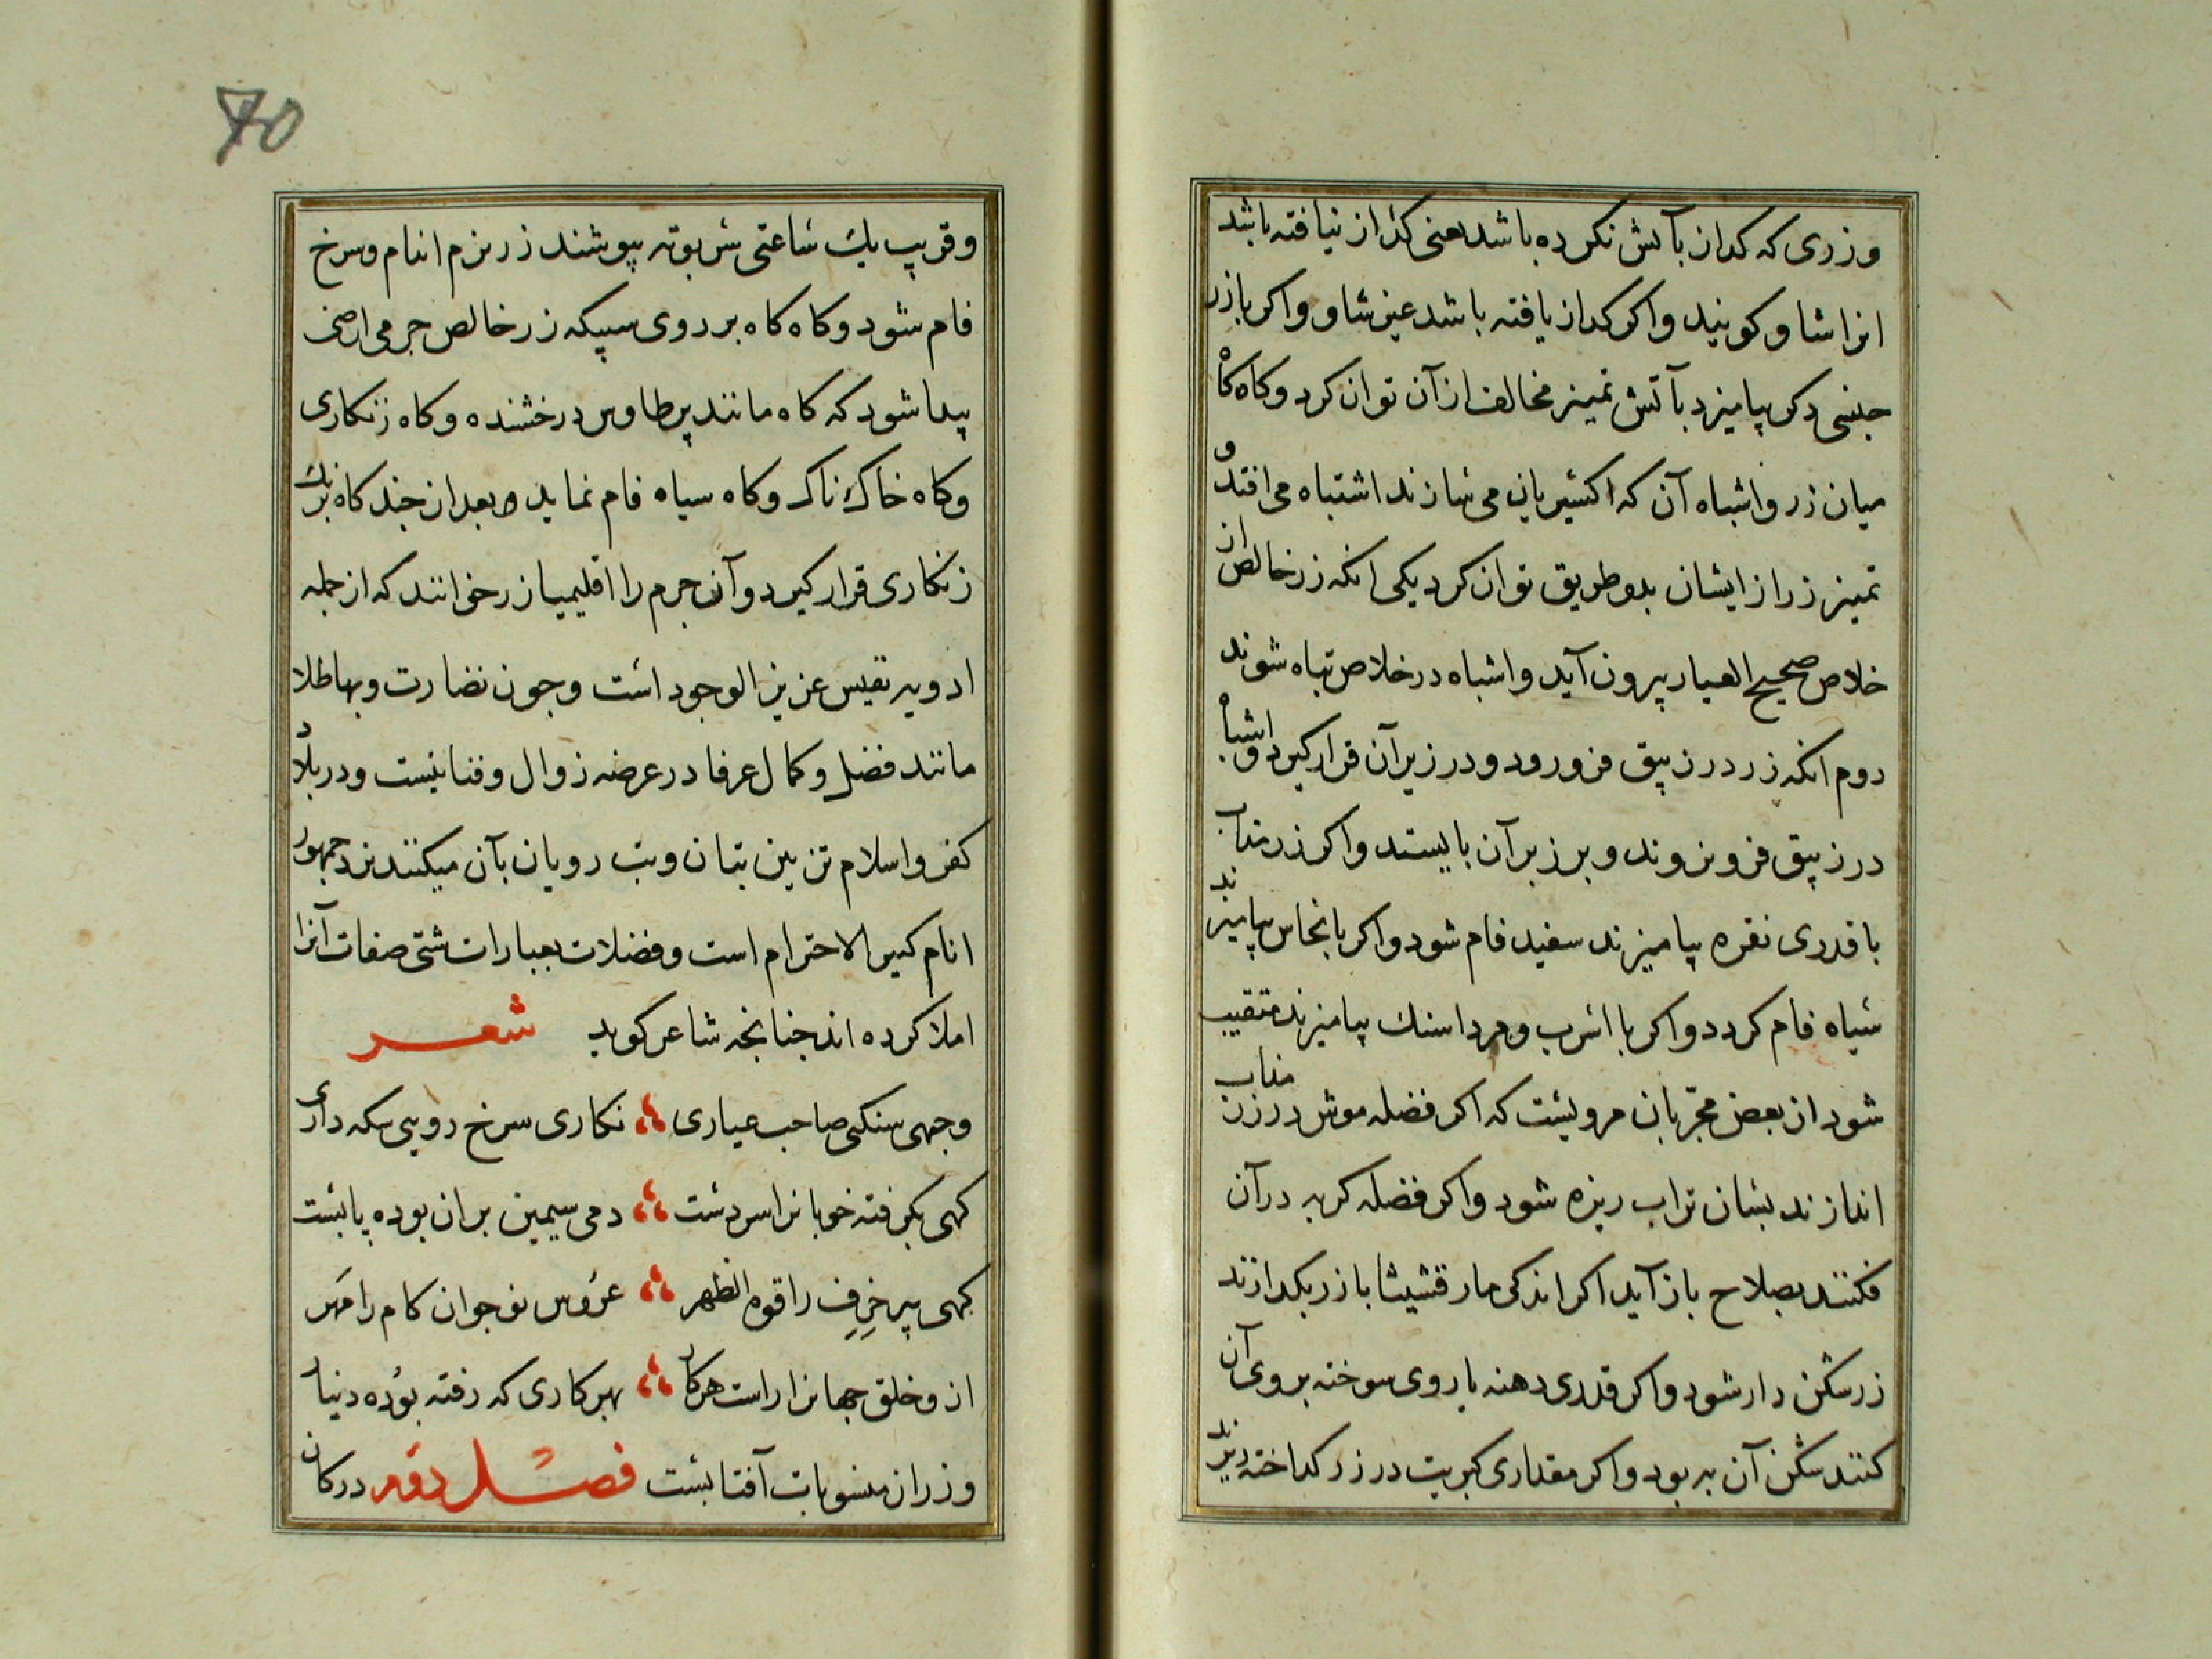 وزری که کداز بآتش نکرده باشد یعنی کذار نیافته باشد
انرا شاو کویند واکر کداز یافته باشد غیر شاو واکر بازر
جنسی دکر بیامیزد بآتش تمییز مخالف ازآن توان کرد وکاه کاه
میان زر واشباه آن که اکسیریان می سازند اشتباه می افتد و
تمییز زر از ایشان بدو طریق توان کرد یکی انکه زر خالص از
خلاص صحیح العیار بیرون آید واشباه در خلاص تباه شوند
دوم انکه زر در زیبق فرو رود و در زیر آن قرار کیرد واشباه
در زیبق فرو نروند و بر زبر آن بایستد واکر زر مذاب
با قدری نقره بیامیزند سفید فام شود واکر با نحاس بیامیزند
سیاه فام کردد واکر با اسرب و مرداسنك بیامیزند متقیب
شود از بعض مجربان مرویست که اکر فضله موش در زر مذاب
اندازند بسان تراب ریزه شود واکر فضله کربه درآن
فکنند بصلاح باز آید اکر اندکی مارقشیثا با زر بکدازند
زر شکن دار شود واکر قدری دهنه یا روی سوخته بروی آن
کنند شکن آن به بود واکر مقداری کبریت در زر کداخته ریزند
70
وقریب یك ساعتی سر بوته بپوشند زر نرم اندام وسرخ
فام شود وکاه کاه بر روی سبیکه زر خالص جرمی ارضی
پیدا شود که کاه مانند پر طاوس درخشنده وکاه زنکاری
وکاه خاك ناك وکاه سیاه فام نماید و بعد از چند کاه برنك
زنکاری قرار کیرد وآن جرم را اقلیمیا زر خوانند که از جمله
ادویه نفیس عزیز الوجود است وجون نضارت وبها طلا
مانند فضل وکمال عرفا در عرضه زوال وفنا نیست ودر بلاد
کفر واسلام تزیین بتان وبت رویان بآن میکنند نزد جمهور
انام کبیر الاحترام است وفضلات بعبارات شتی صفات آنرا
املا کرده اند جنانجه شاعر کوید شعر
وجهی سنکی صاحب عیاری نکاری سرخ رویی سکه داری
کهی بکرفته خوبانرا سر دست دمی سیمین بران بوده پابست
کهی پیر خرف را قوه الظهر عروس نوجوان کام را مهر
از وخلق جهانرا راست هر کار بهر کاری که رفته بوده دنیار
وزر از منسوبات آفتابست فصل دوم در کان